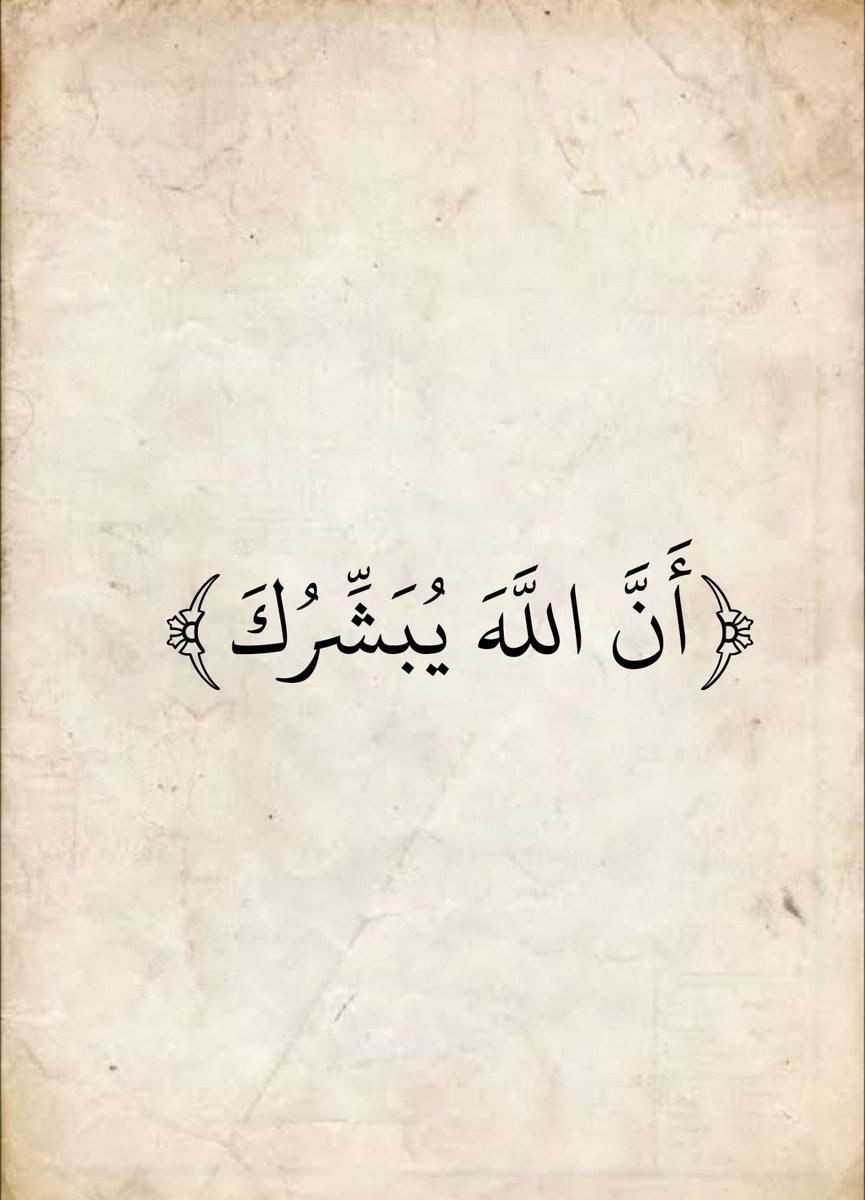 ﴿أَنَّ اللَّهَ يُبَشِّرُكَ﴾